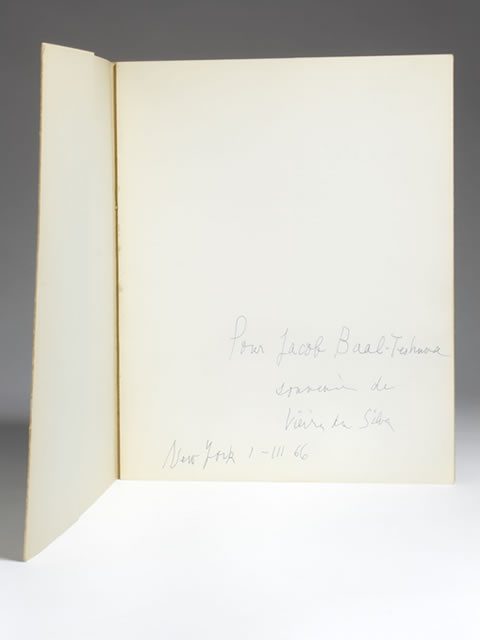 Pour Jacob Baal-Teshuva
souvenir de
Vieira da Silva
New York 1-III 66